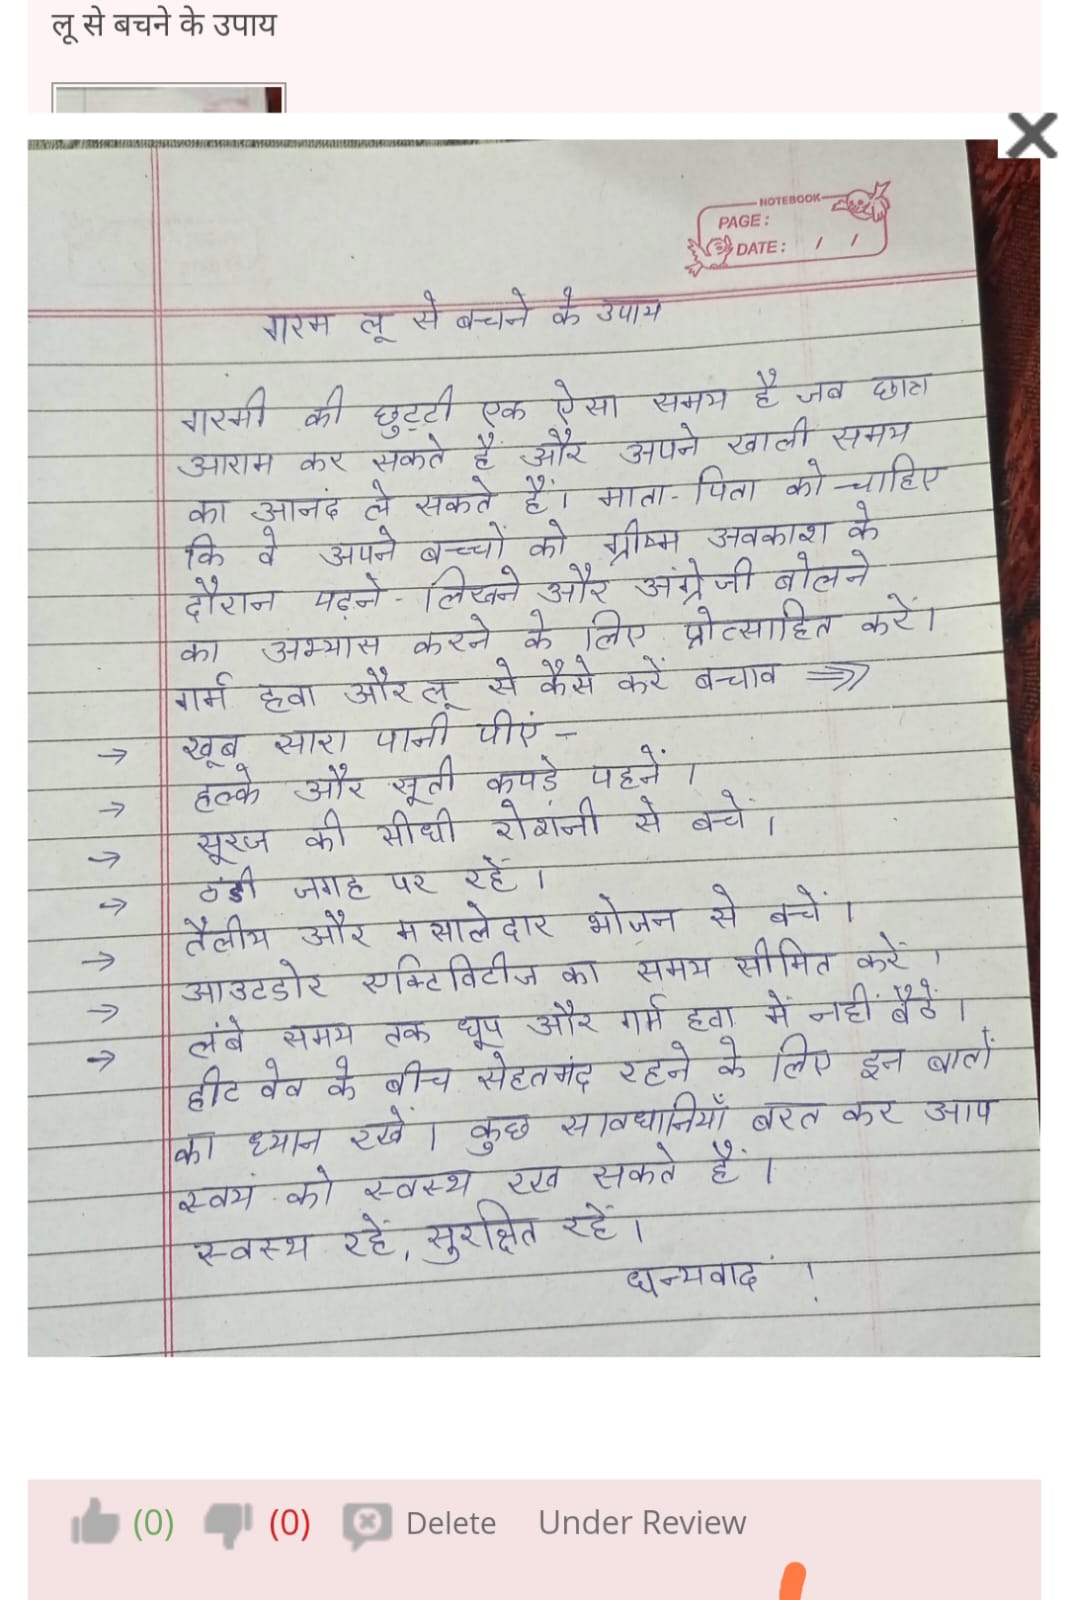 लू से बचने के उपाय
NOTEBOOK
PAGE :
DATE : / /
गरम लू से बचने के उपाय
गरमी की छुट्टी एक ऐसा समय है जब छात्र
आराम कर सकते हैं और अपने खाली समय
का आनंद ले सकते हैं। माता-पिता को चाहिए
कि वे अपने बच्चों को ग्रीष्म अवकाश के
दौरान पढ़ने-लिखने और अंग्रेजी बोलने
का अभ्यास करने के लिए प्रोत्साहित करें।
गर्म हवा और लू से कैसे करें बचाव ⇒
→ खूब सारा पानी पीएं -
→ हल्के और सूती कपड़े पहनें।
→ सूरज की सीधी रोशनी से बचें।
→ ठंडी जगह पर रहें।
→ तैलीय और मसालेदार भोजन से बचें।
→ आउटडोर एक्टिविटीज का समय सीमित करें।
→ लंबे समय तक धूप और गर्म हवा में नहीं बैठें।
हीट वेव के बीच सेहतमंद रहने के लिए इन बातों
का ध्यान रखें। कुछ सावधानियाँ बरत कर आप
स्वयं को स्वस्थ रख सकते हैं।
स्वस्थ रहें, सुरक्षित रहें।
धन्यवाद !
(0) (0) Delete Under Review